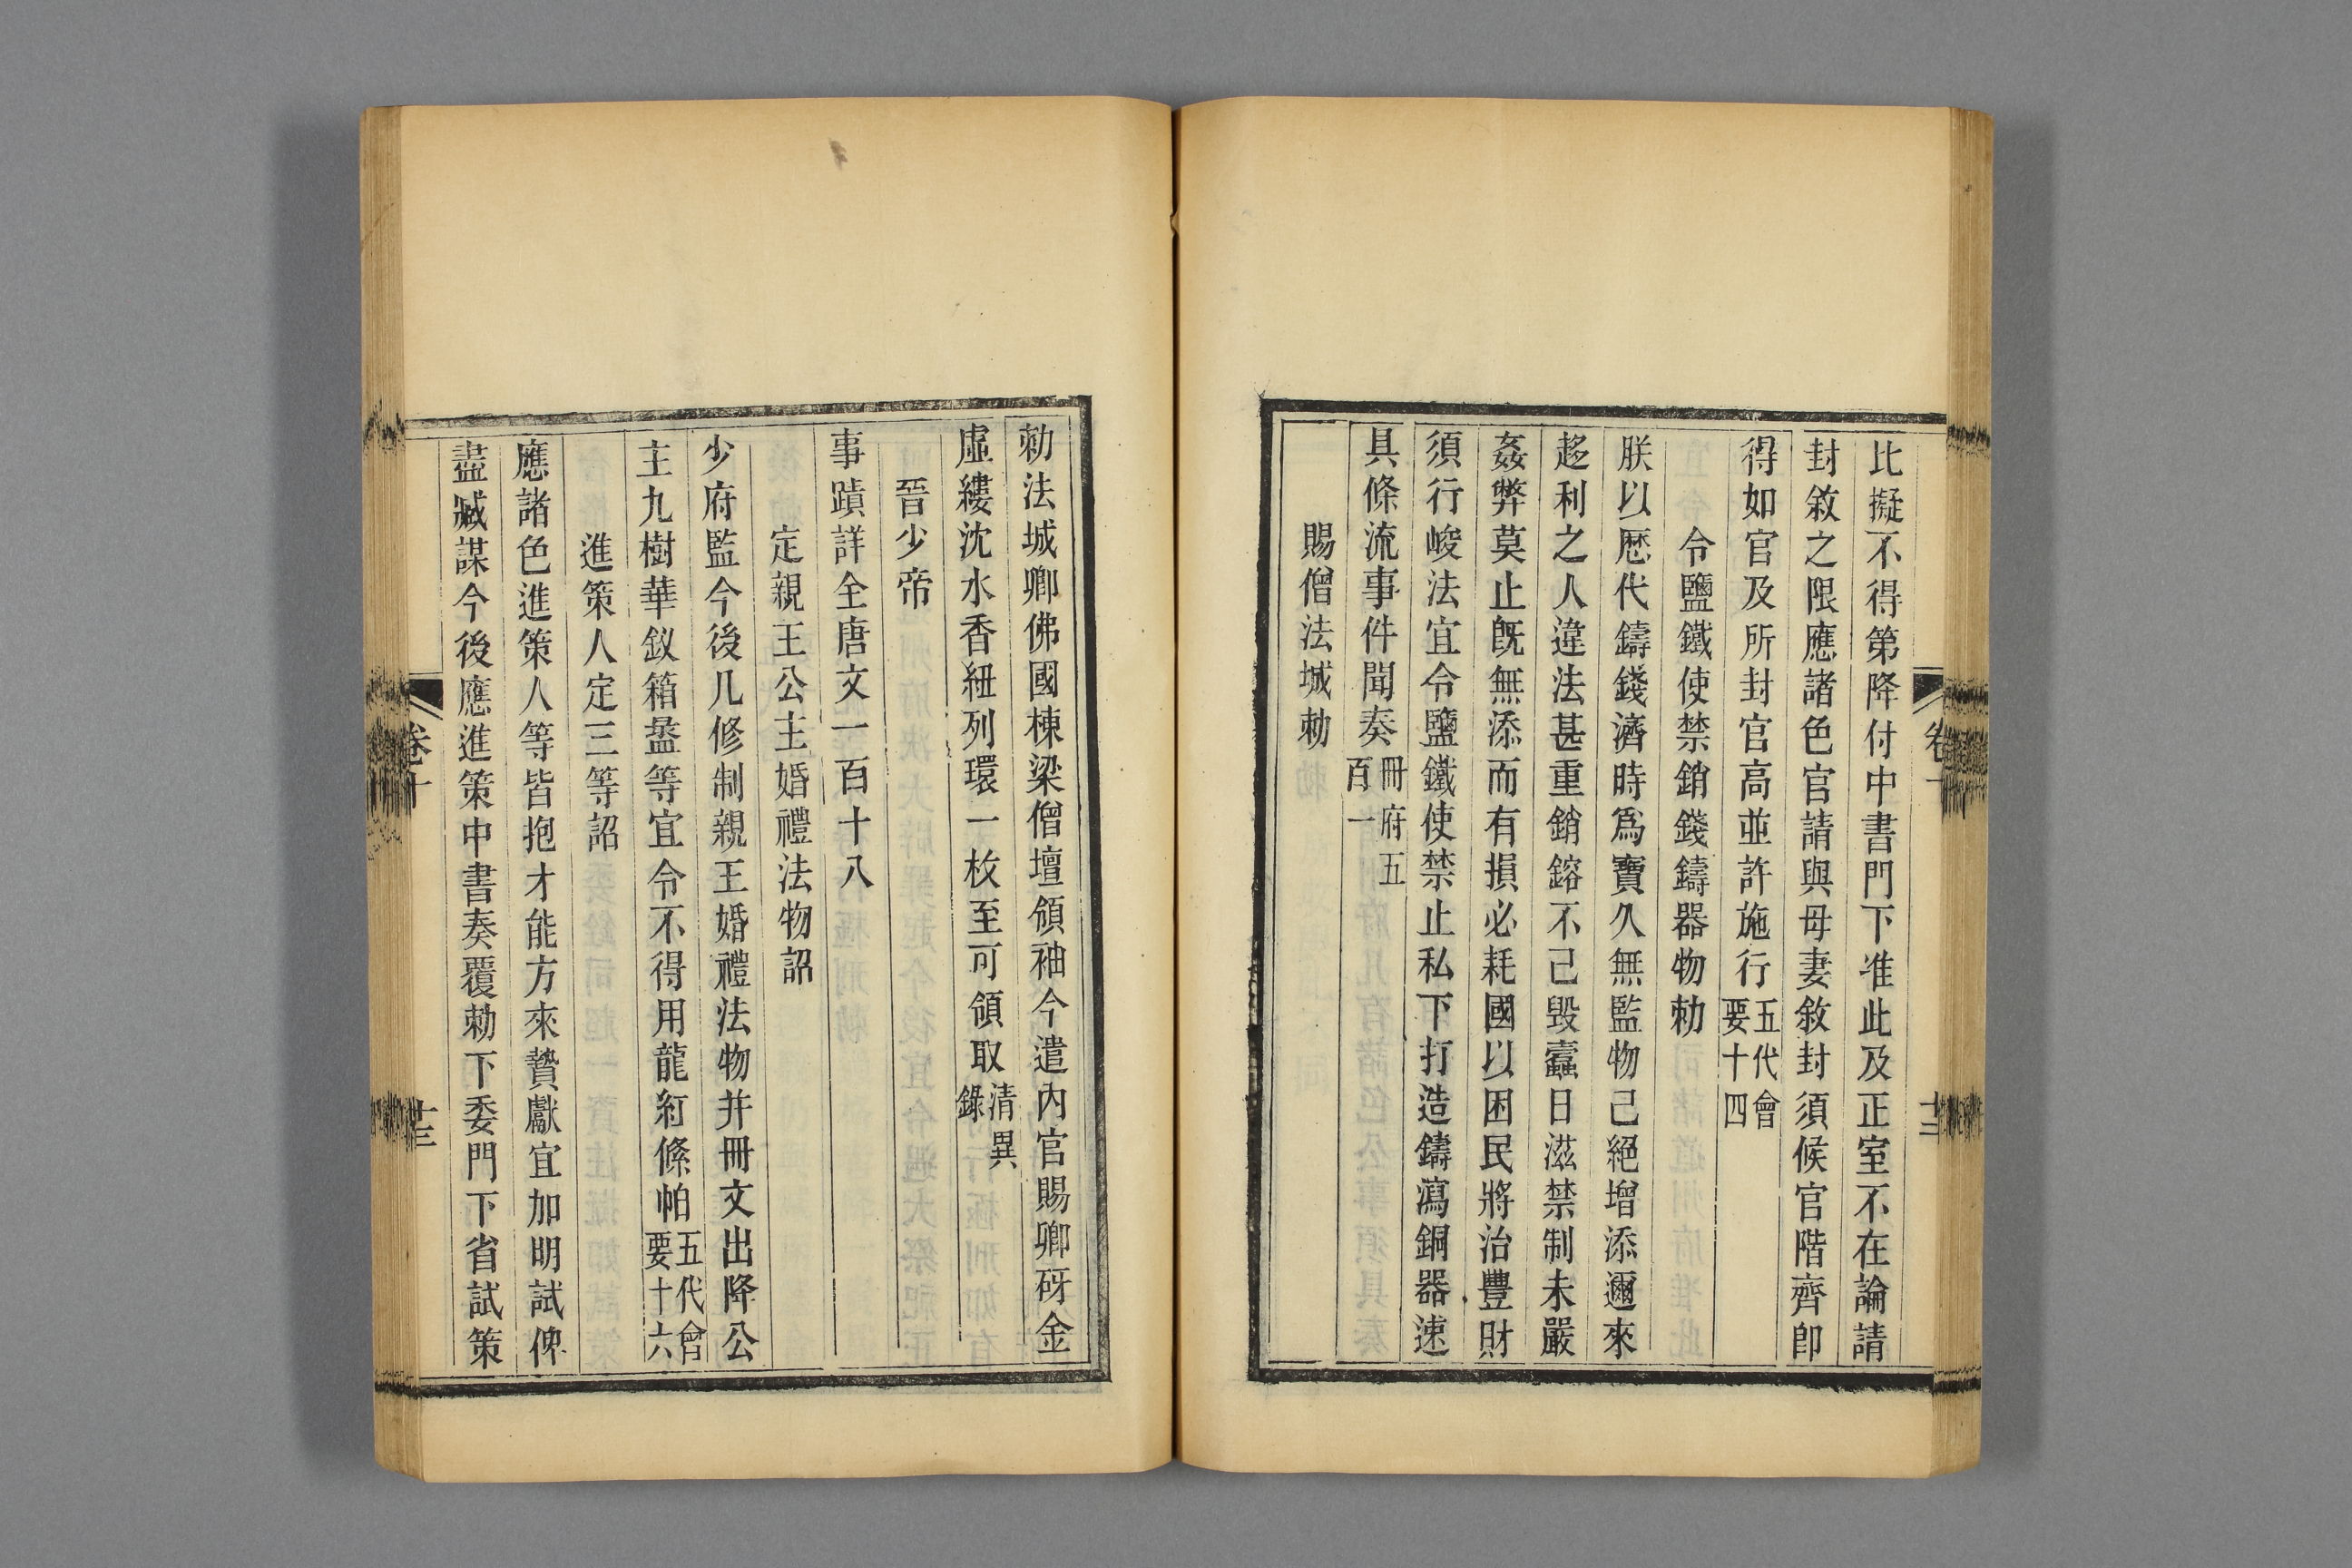 比擬不得第降付中書門下准此及正室不在論請
封敘之限應諸色官請與母妻敘封須候官階齊卽
得如官及所封官高並許施行五代會要十四
令鹽鐵使禁銷錢鑄器物勅
朕以厯代鑄錢濟時爲寶久無監物己絕增添邇來
趍利之人違法甚重銷鎔不己毀蠹日滋禁制未嚴
姦弊莫止旣無添而有損必耗國以困民將治豐財
須行峻法宜令鹽鐵使禁止私下打造鑄瀉銅器速
具條流事件聞奏冊府五百一
賜僧法城勅
勅法城卿佛國棟梁僧壇領袖今遣內官賜卿砑金
虛縷沈水香紐列環一枚至可領取清異錄
晉少帝
事蹟詳全唐文一百十八
定親王公主婚禮法物詔
少府監今後凡修制親王婚禮法物并冊文出降公
主九樹華釵箱㿽等宜令不得用龍紅絛帕五代會要十六
進策人定三等詔
應諸色進策人等皆抱才能方來贄獻宜加明試俾
盡臧謀今後應進策中書奏覆勅下委門下省試策
卷十
十三